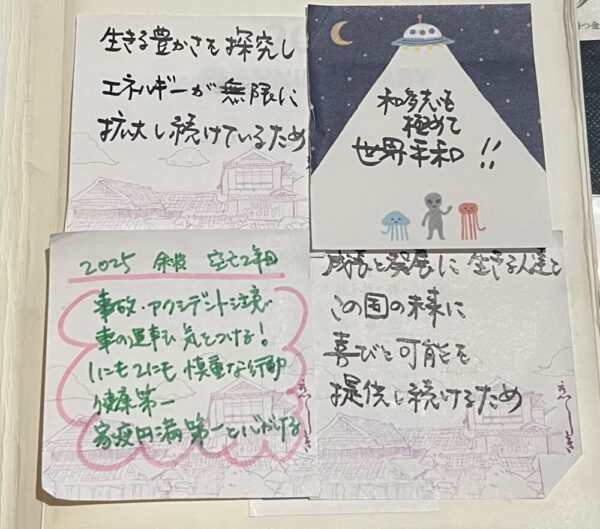 生きる豊かさを探究し
エネルギーが無限に
拡大し続けているため
和多志を
極めて
世界平和!!
2025 空亡2年目
事故・アクシデント注意
車の運転も気をつける!
1にも2にも慎重な行動
健康第一
家庭円満第一と心がける
成長と発展に生きる人達と
この国の未来に
喜びと可能を
提供し続けるため